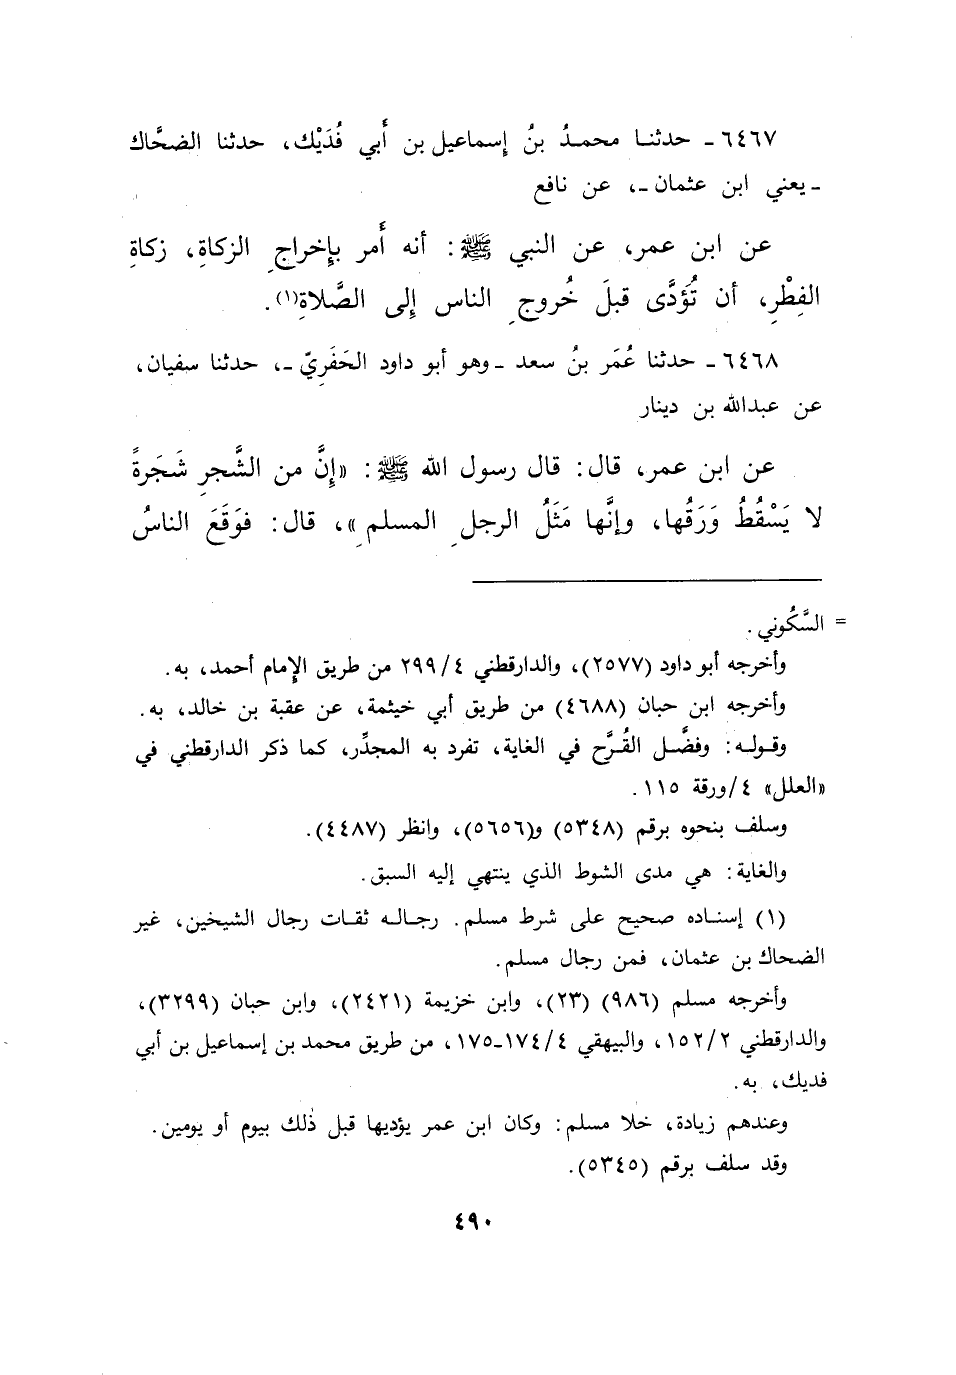 ٦٤٦٧ ـ حدثنا محمدُ بنُ إسماعيل بن أَبي فُدَيْك، حدثنا الضحَّاك
ـ يعني ابن عثمان ـ، عن نافع
عن ابن عمر، عن النبي ﷺ: أنه أَمر بإِخراجِ الزكاةِ، زكاةِ
الفِطْرِ، أن تُؤَدَّى قبلَ خُروجِ الناس إِلى الصَّلاةِ(١).
٦٤٦٨ ـ حدثنا عُمَر بنُ سعد ـ وهو أبو داود الحَفَرِيّ ـ، حدثنا سفيان،
عن عبدالله بن دينار
عن ابن عمر، قال: قال رسول الله ﷺ: «إِنَّ من الشَّجرِ شَجَرةً
لا يَسْقُطُ وَرَقُها، وإنَّها مَثَلُ الرجلِ المسلمِ»، قال: فوَقَعَ الناسُ
= السَّكُوني.
وأخرجه أبو داود (٢٥٧٧)، والدارقطني ٢٩٩/٤ من طريق الإِمام أحمد، به.
وأخرجه ابن حبان (٤٦٨٨) من طريق أبي خيثمة، عن عقبة بن خالد، به.
وقوله: وفضَّل القُرَّح في الغاية، تفرد به المجدِّر، كما ذكر الدارقطني في
«العلل» ٤/ورقة ١١٥.
وسلف بنحوه برقم (٥٣٤٨) و(٥٦٥٦)، وانظر (٤٤٨٧).
والغاية: هي مدى الشوط الذي ينتهي إليه السبق.
(١) إسناده صحيح على شرط مسلم. رجاله ثقات رجال الشيخين، غير
الضحاك بن عثمان، فمن رجال مسلم.
وأخرجه مسلم (٩٨٦) (٢٣)، وابن خزيمة (٢٤٢١)، وابن حبان (٣٢٩٩)،
والدارقطني ١٥٢/٢، والبيهقي ١٧٤/٤-١٧٥، من طريق محمد بن إسماعيل بن أبي
فديك، به.
وعندهم زيادة، خلا مسلم: وكان ابن عمر يؤديها قبل ذٰلك بيوم أو يومين.
وقد سلف برقم (٥٣٤٥).
٤٩٠